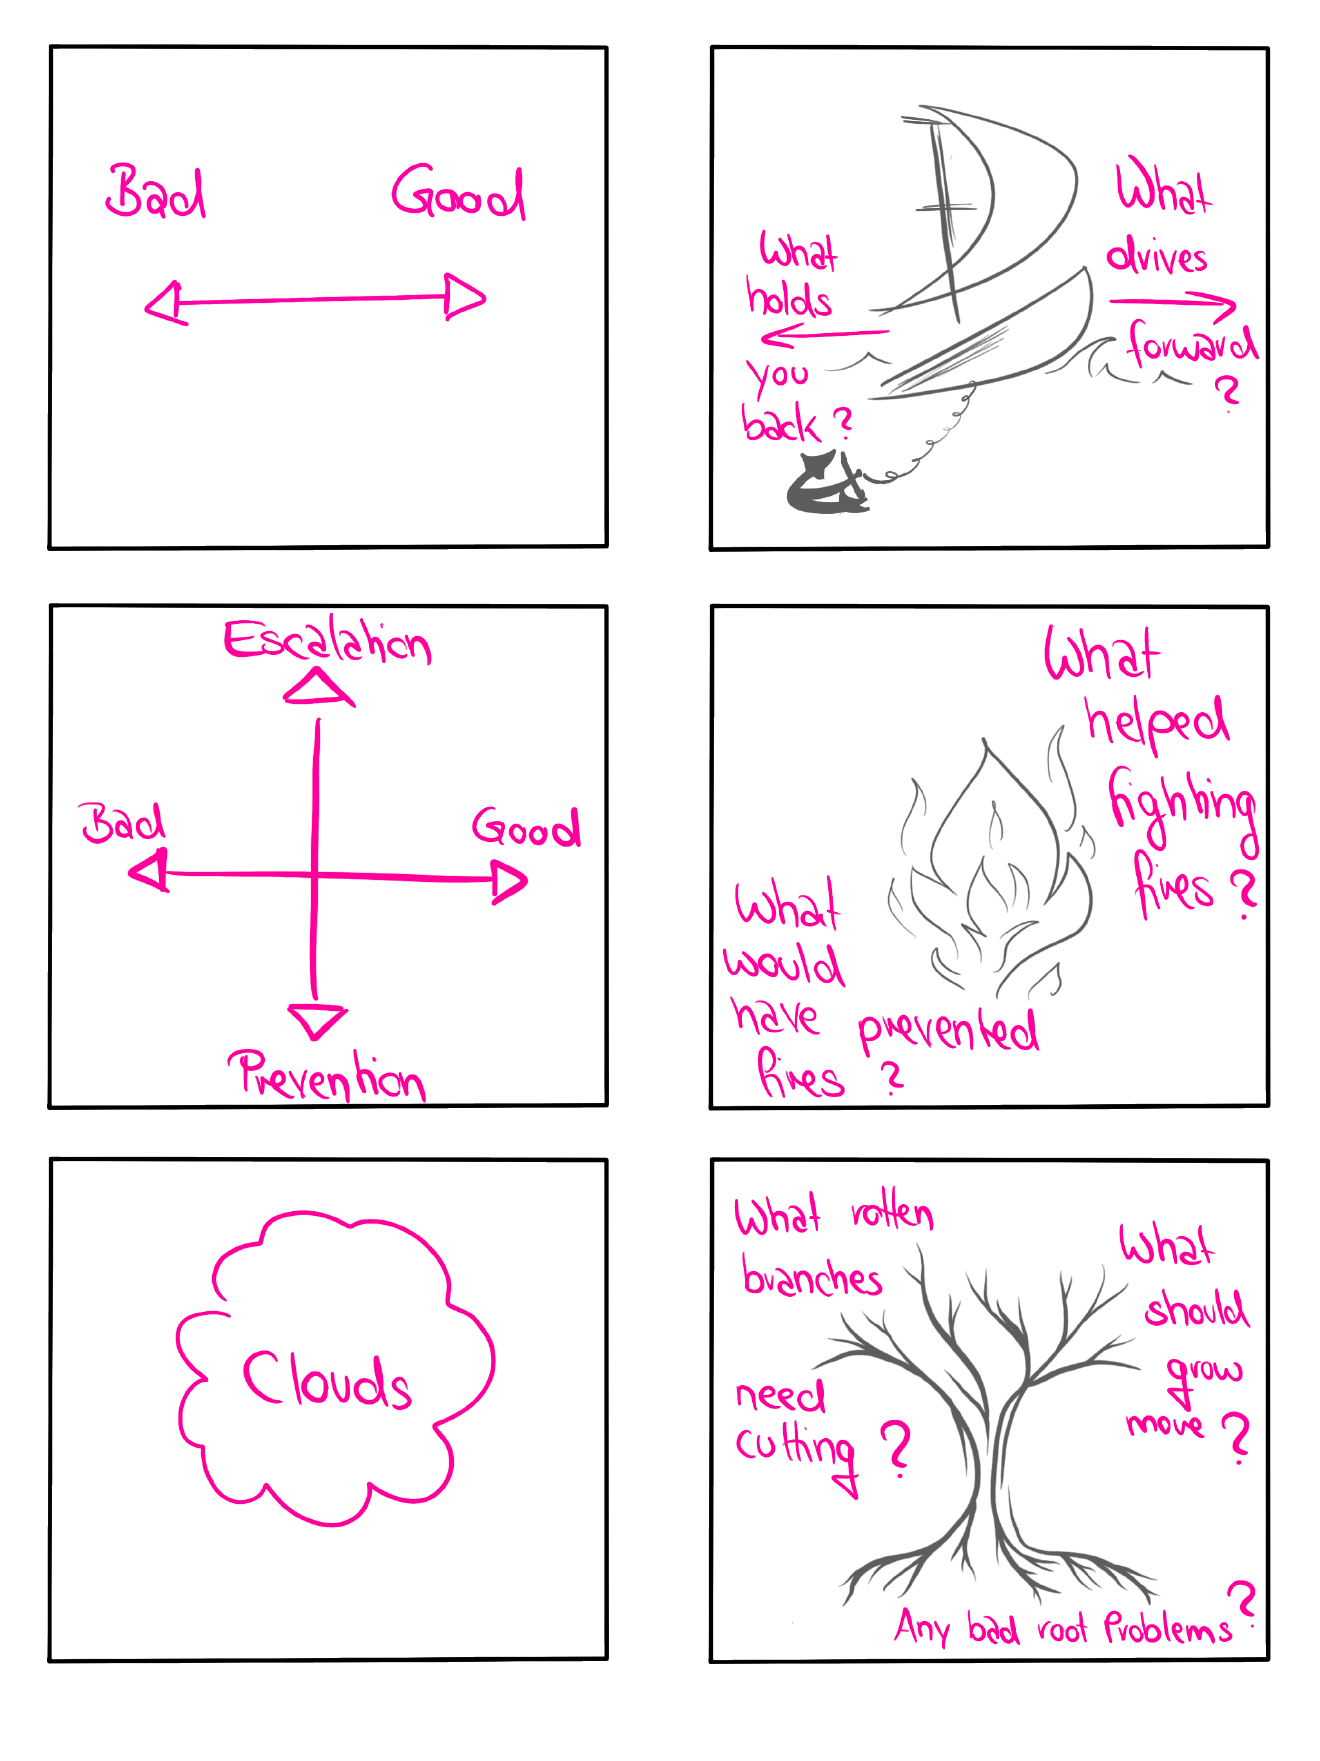 Bad Good
What
holds
you
back?
What
drives
forward
?
Escalation
Bad
Good
Prevention
What
helped
fighting
fires?
What
would
have prevented
fires ?
Clouds
What rotten
branches
need
cutting?
What
should
grow
move?
Any bad root Problems?